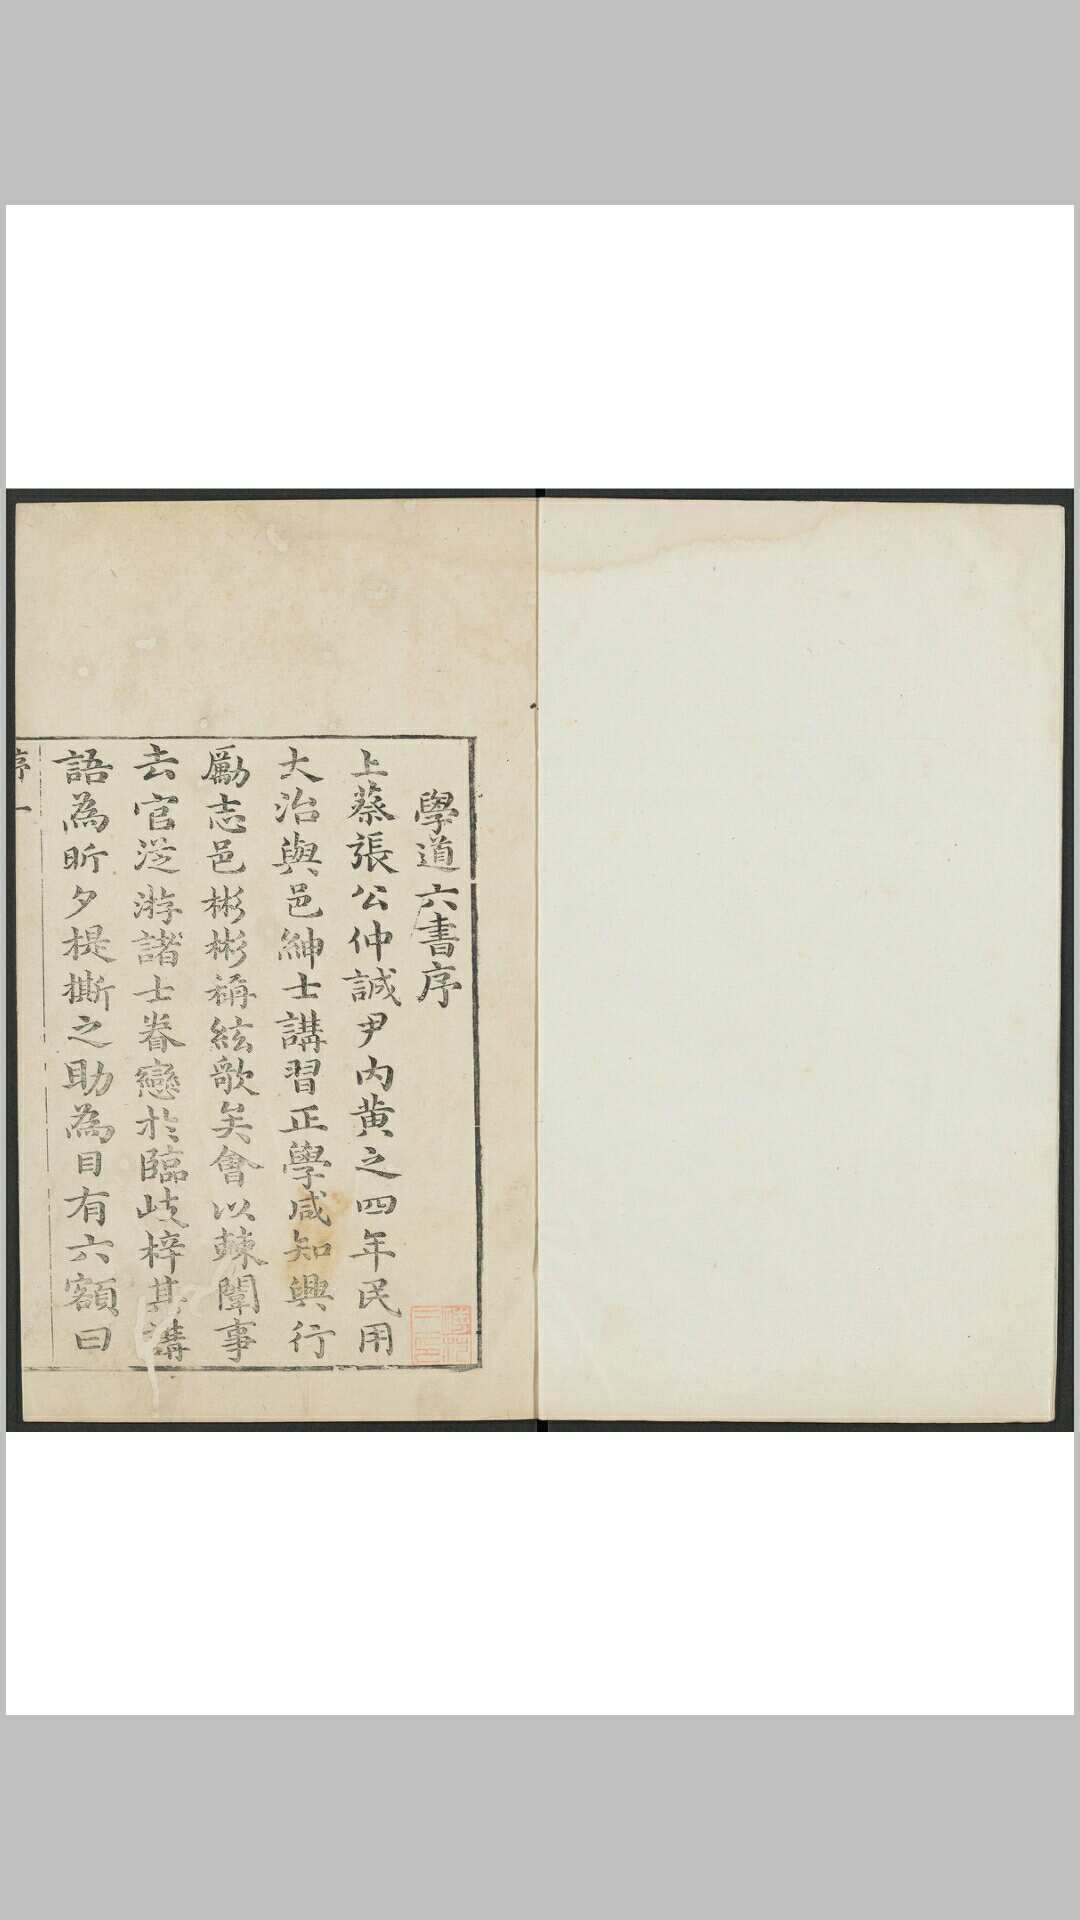 學道六書序
上蔡張公仲誠尹內黄之四年民用
大治與邑紳士講習正學咸知興行
勵志邑彬彬稱絃歌矣會以棘闈事
去官從游諸士眷戀於臨岐梓其講
語為昕夕提撕之助為目有六額曰
序一